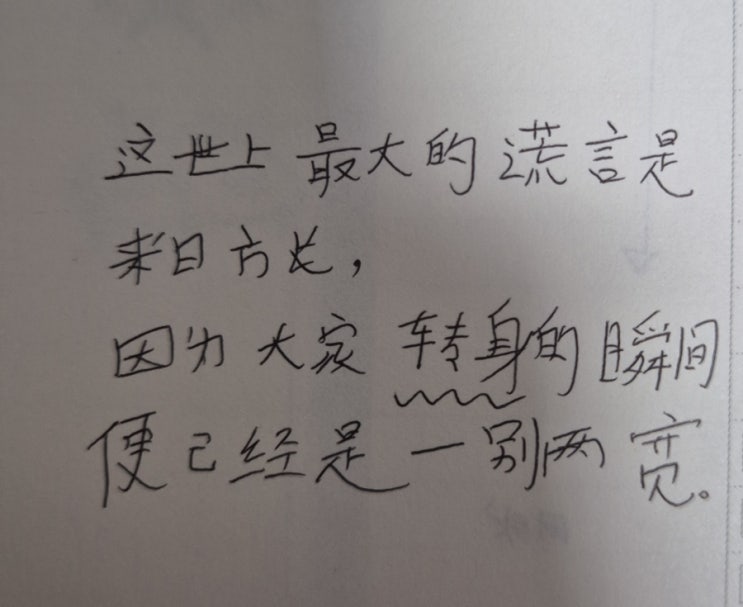 这世上最大的谎言是
来日方长，
因为大家转身的瞬间
便已经是一别两宽。